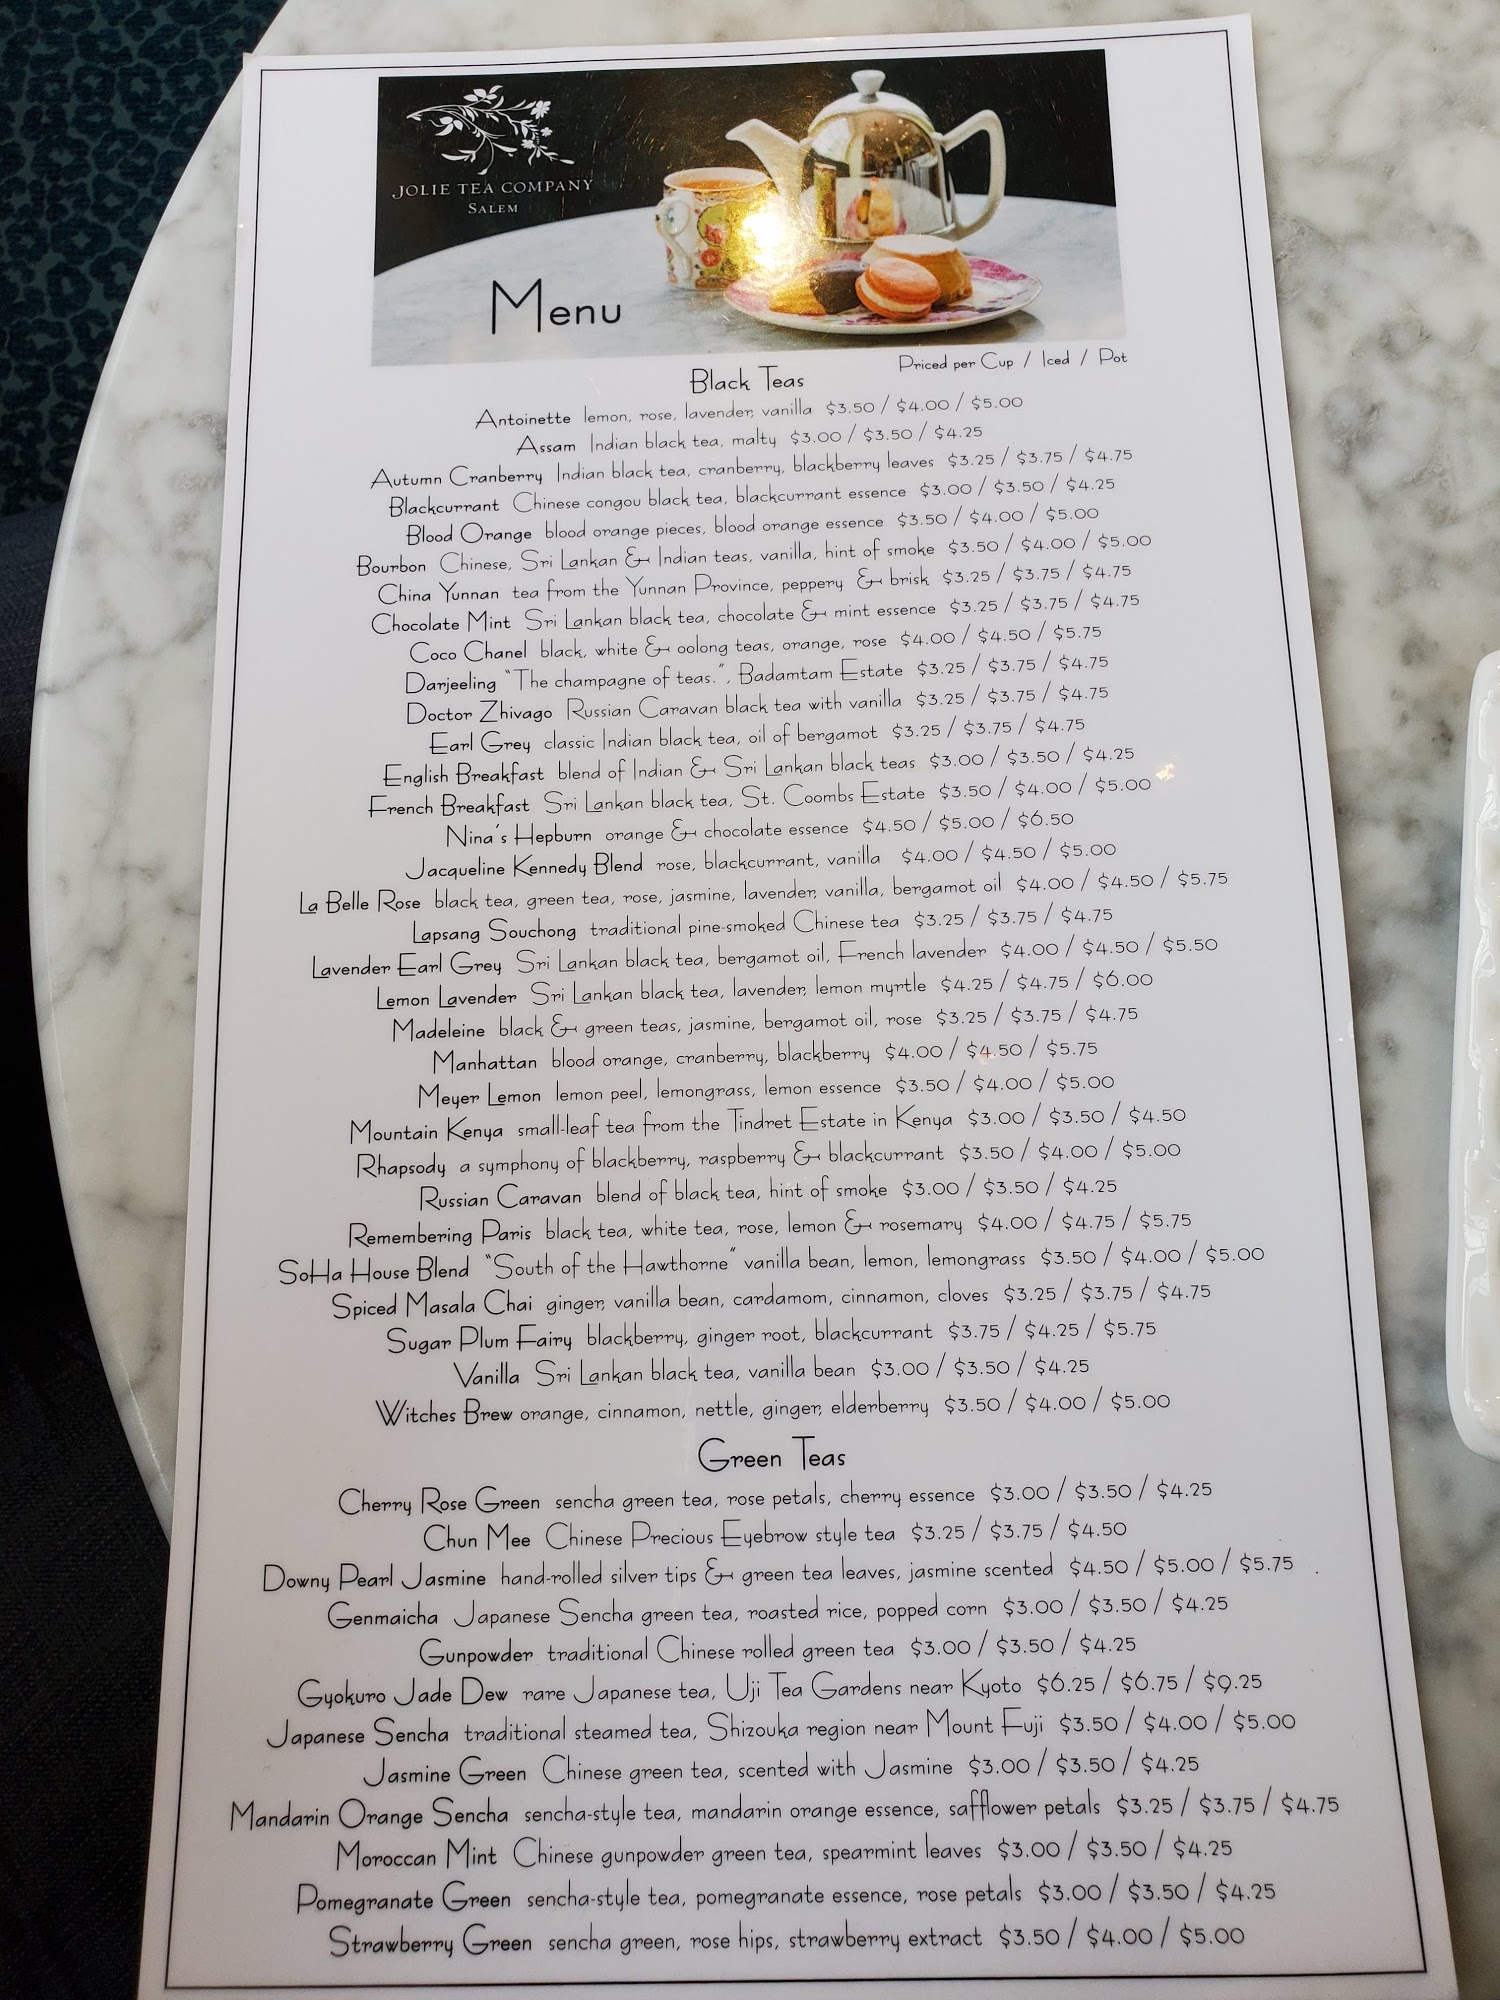 JOLIE TEA COMPANY
SALEM
Menu
Priced per Cup / Iced / Pot
Black Teas
Antoinette lemon, rose, lavender, vanilla $3.50 / $4.00 / $5.00
Assam Indian black tea, malty $3.00 / $3.50 / $4.25
Autumn Cranberry Indian black tea, cranberry, blackberry leaves $3.25 / $3.75 / $4.75
Blackcurrant Chinese congou black tea, blackcurrant essence $3.00 / $3.50 / $4.25
Blood Orange blood orange pieces, blood orange essence $3.50 / $4.00 / $5.00
Bourbon Chinese, Sri Lankan & Indian teas, vanilla, hint of smoke $3.50 / $4.00 / $5.00
China Yunnan tea from the Yunnan Province, peppery & brisk $3.25 / $3.75 / $4.75
Chocolate Mint Sri Lankan black tea, chocolate & mint essence $3.25 / $3.75 / $4.75
Coco Chanel black, white & oolong teas, orange, rose $4.00 / $4.50 / $5.75
Darjeeling "The champagne of teas.", Badamtam Estate $3.25 / $3.75 / $4.75
Doctor Zhivago Russian Caravan black tea with vanilla $3.25 / $3.75 / $4.75
Earl Grey classic Indian black tea, oil of bergamot $3.25 / $3.75 / $4.75
English Breakfast blend of Indian & Sri Lankan black teas $3.00 / $3.50 / $4.25
French Breakfast Sri Lankan black tea, St. Coombs Estate $3.50 / $4.00 / $5.00
Nina's Hepburn orange & chocolate essence $4.50 / $5.00 / $6.50
Jacqueline Kennedy Blend rose, blackcurrant, vanilla $4.00 / $4.50 / $5.00
La Belle Rose black tea, green tea, rose, jasmine, lavender, vanilla, bergamot oil $4.00 / $4.50 / $5.75
Lapsang Souchong traditional pine-smoked Chinese tea $3.25 / $3.75 / $4.75
Lavender Earl Grey Sri Lankan black tea, bergamot oil, French lavender $4.00 / $4.50 / $5.50
Lemon Lavender Sri Lankan black tea, lavender, lemon myrtle $4.25 / $4.75 / $6.00
Madeleine black & green teas, jasmine, bergamot oil, rose $3.25 / $3.75 / $4.75
Manhattan blood orange, cranberry, blackberry $4.00 / $4.50 / $5.75
Meyer Lemon lemon peel, lemongrass, lemon essence $3.50 / $4.00 / $5.00
Mountain Kenya small-leaf tea from the Tindret Estate in Kenya $3.00 / $3.50 / $4.50
Rhapsody a symphony of blackberry, raspberry & blackcurrant $3.50 / $4.00 / $5.00
Russian Caravan blend of black tea, hint of smoke $3.00 / $3.50 / $4.25
Remembering Paris black tea, white tea, rose, lemon & rosemary $4.00 / $4.75 / $5.75
SoHa House Blend "South of the Hawthorne" vanilla bean, lemon, lemongrass $3.50 / $4.00 / $5.00
Spiced Masala Chai ginger, vanilla bean, cardamom, cinnamon, cloves $3.25 / $3.75 / $4.75
Sugar Plum Fairy blackberry, ginger root, blackcurrant $3.75 / $4.25 / $5.75
Vanilla Sri Lankan black tea, vanilla bean $3.00 / $3.50 / $4.25
Witches Brew orange, cinnamon, nettle, ginger, elderberry $3.50 / $4.00 / $5.00
Green Teas
Cherry Rose Green sencha green tea, rose petals, cherry essence $3.00 / $3.50 / $4.25
Chun Mee Chinese Precious Eyebrow style tea $3.25 / $3.75 / $4.50
Downy Pearl Jasmine hand-rolled silver tips & green tea leaves, jasmine scented $4.50 / $5.00 / $5.75
Genmaicha Japanese Sencha green tea, roasted rice, popped corn $3.00 / $3.50 / $4.25
Gunpowder traditional Chinese rolled green tea $3.00 / $3.50 / $4.25
Gyokuro Jade Dew rare Japanese tea, Uji Tea Gardens near Kyoto $6.25 / $6.75 / $9.25
Japanese Sencha traditional steamed tea, Shizouka region near Mount Fuji $3.50 / $4.00 / $5.00
Jasmine Green Chinese green tea, scented with Jasmine $3.00 / $3.50 / $4.25
Mandarin Orange Sencha sencha-style tea, mandarin orange essence, safflower petals $3.25 / $3.75 / $4.75
Moroccan Mint Chinese gunpowder green tea, spearmint leaves $3.00 / $3.50 / $4.25
Pomegranate Green sencha-style tea, pomegranate essence, rose petals $3.00 / $3.50 / $4.25
Strawberry Green sencha green, rose hips, strawberry extract $3.50 / $4.00 / $5.00